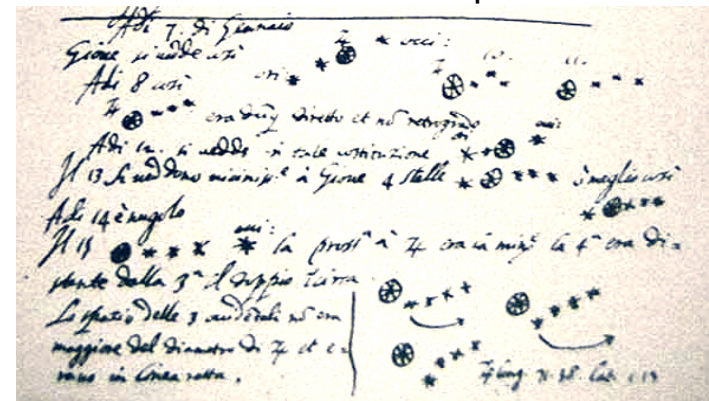 Adi 7. di Gennaio
Gione si vedde così
Adi 8 così
era dūq diretto et nō retrogrado
Adi 12. si vedde in tale costituzione
Il 13 si veddono minimiss.e à Gione 4 stelle è meglio così
Adi 14 è nugolo
Il 15 la pross.a à ♃ era la min.e la 4.a era di=
stante dalla 3.a il doppio Circa
Lo spatio delle 3 occidētali nō era
maggiore del diametro di ♃ et e=
rano in linea retta.
♃ long. 71.38 lat. 1.13